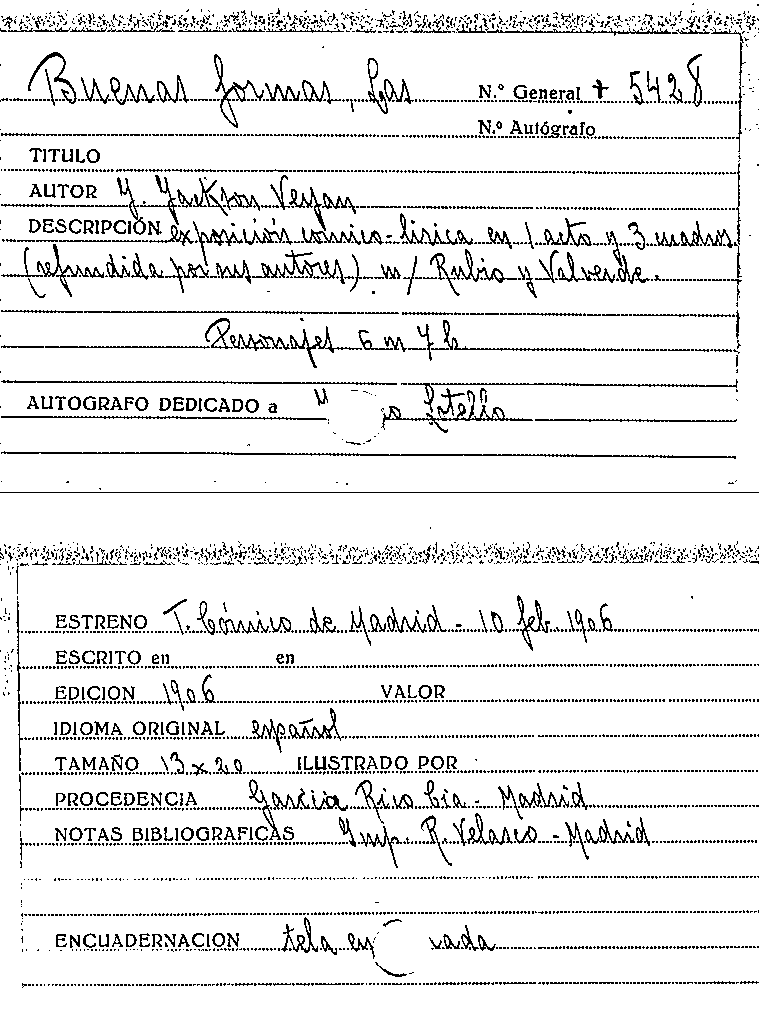 Buenas formas, Las
N.º General + 5428
N.º Autógrafo
TITULO
AUTOR J. Jackson Veyan
DESCRIPCIÓN exposición cómico-lírica en 1 acto y 3 cuadros
(refundida por sus autores) m/ Rubio y Valverde.
Personajes 6 m 7 h
AUTOGRAFO DEDICADO a Lotello
ESTRENO T. Cómico de Madrid - 10 feb. 1906
ESCRITO en en
EDICION 1906 VALOR
IDIOMA ORIGINAL español
TAMAÑO 13 x 20 ILUSTRADO POR
PROCEDENCIA García Rico Cía - Madrid
NOTAS BIBLIOGRAFICAS Imp. R. Velasco - Madrid
ENCUADERNACION tela